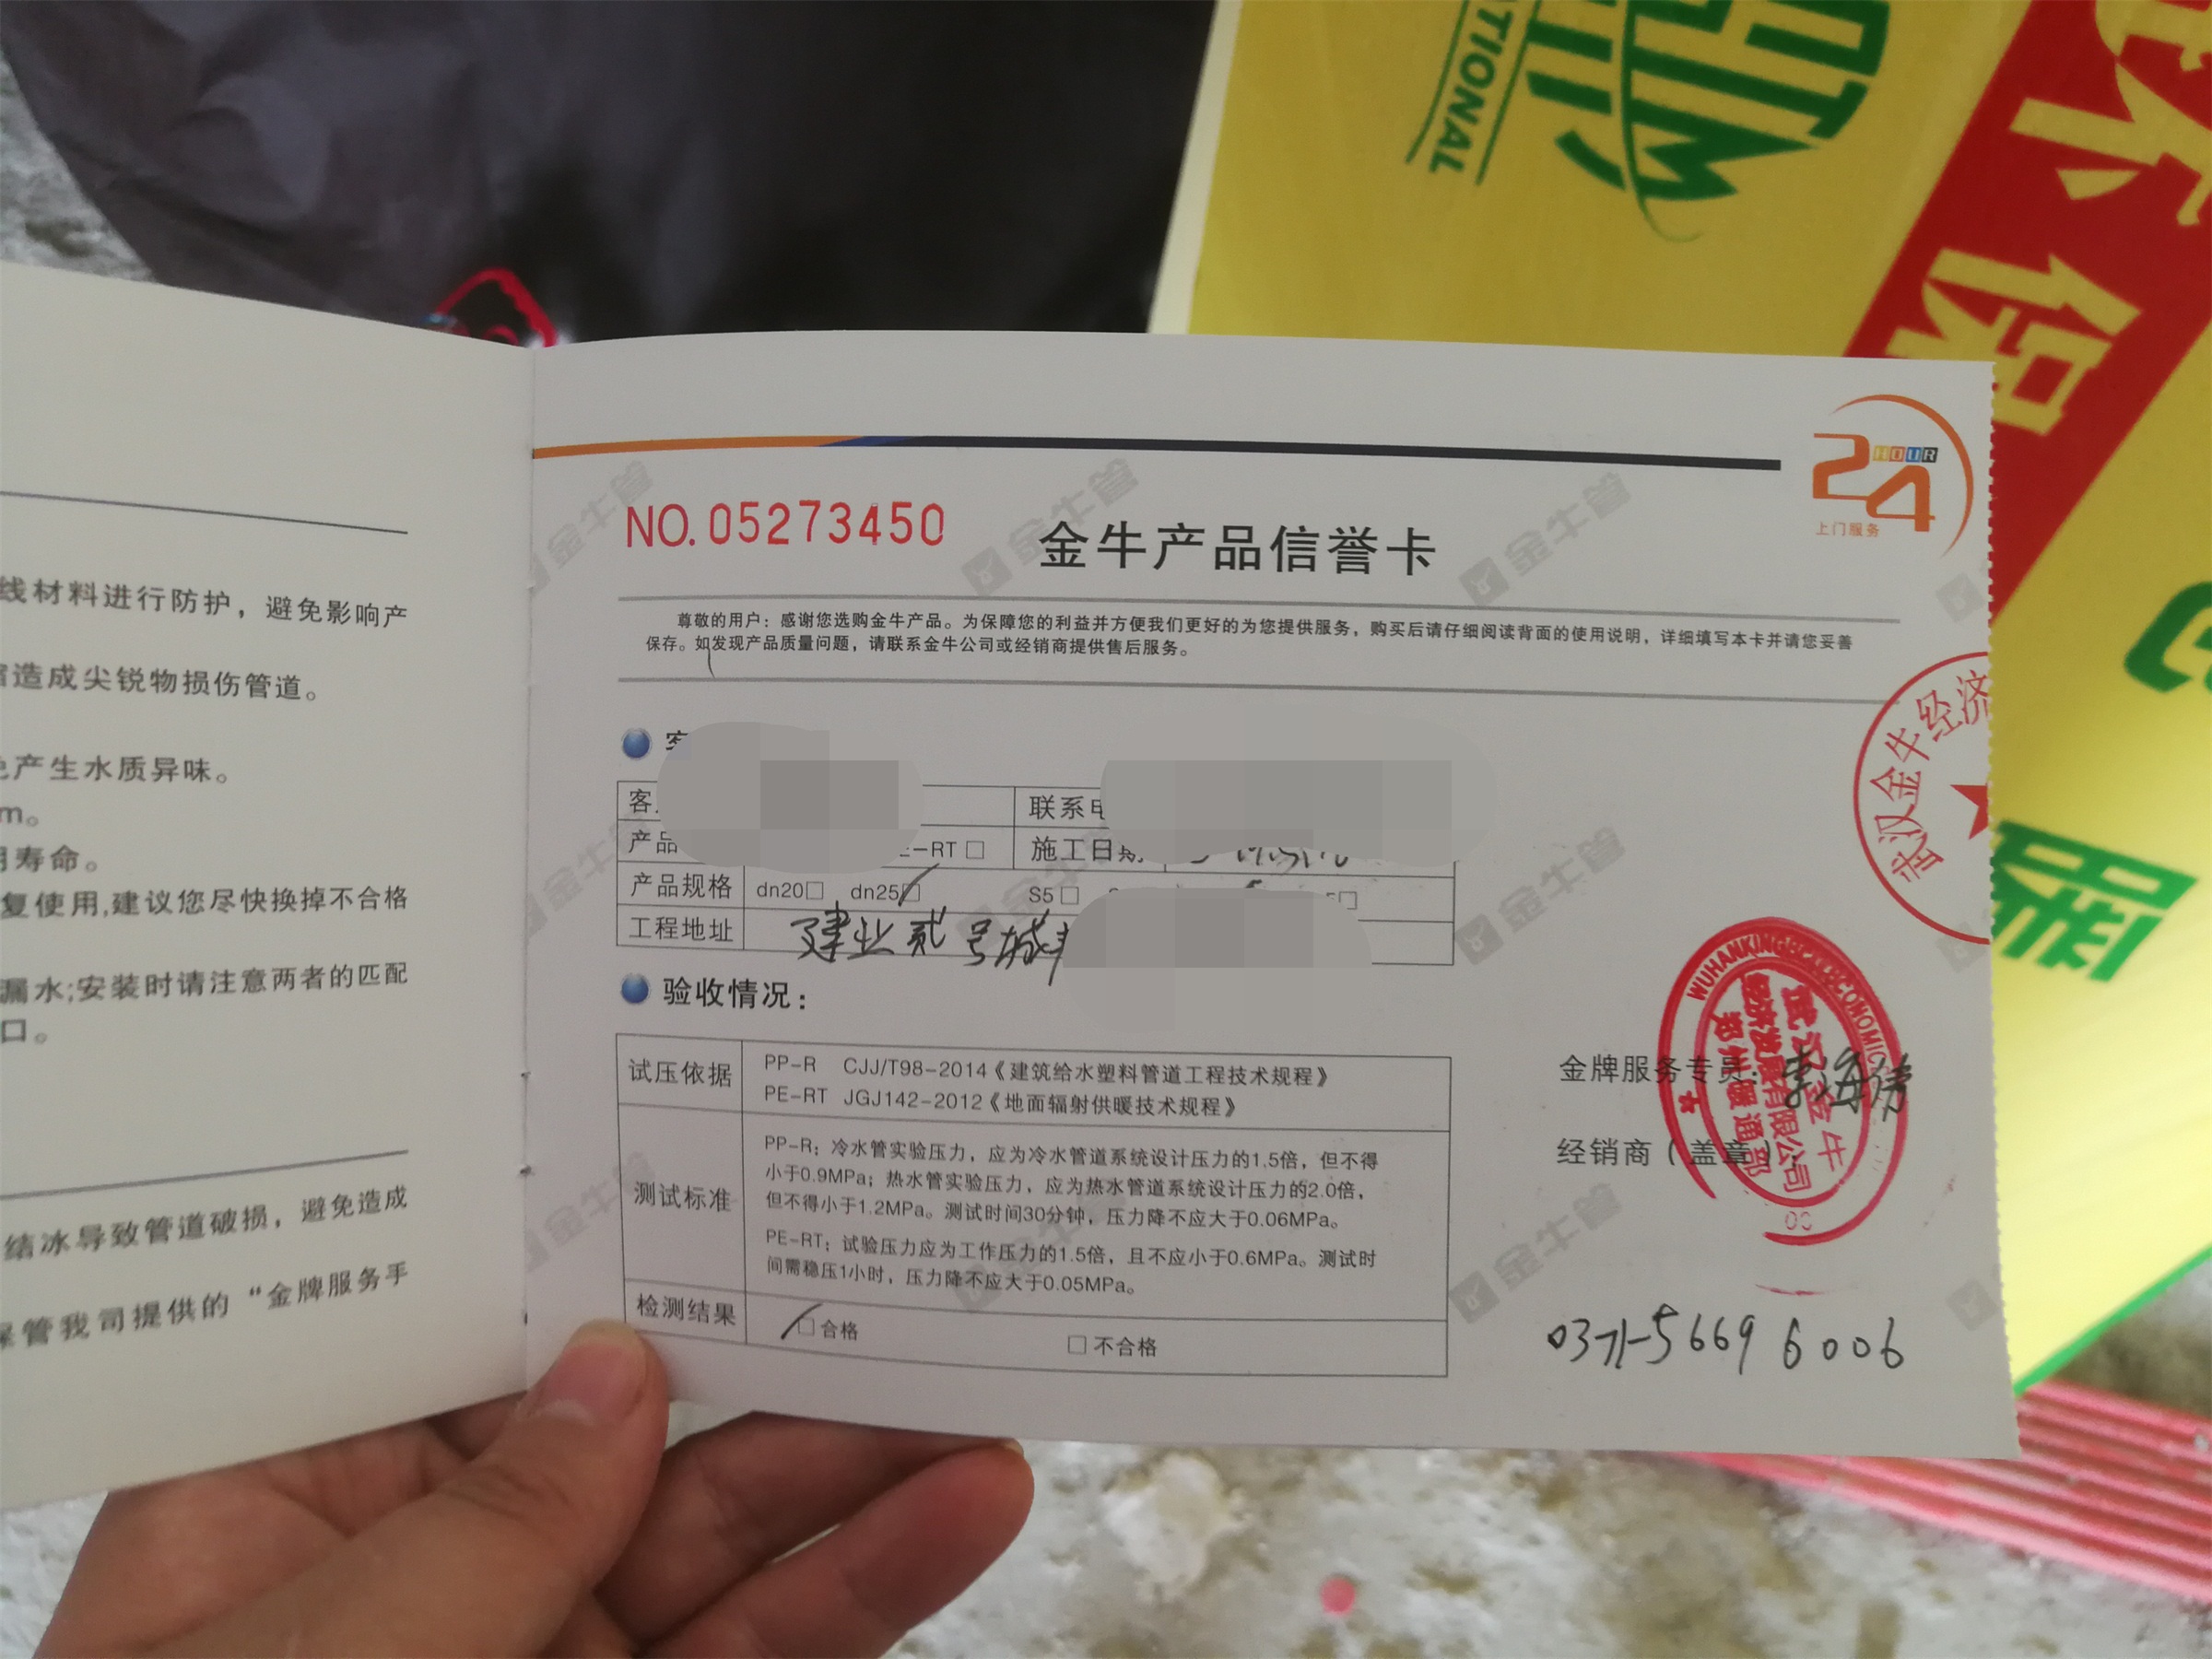 TIONAL
不
保
线材料进行防护，避免影响产
造成尖锐物损伤管道。
产生水质异味。
m。
寿命。
复使用,建议您尽快换掉不合格
漏水;安装时请注意两者的匹配
口。
结冰导致管道破损，避免造成
管我司提供的“金牌服务手
24
HOUR
上门服务
NO.05273450
金牛产品信誉卡
尊敬的用户：感谢您选购金牛产品。为保障您的利益并方便我们更好的为您提供服务，购买后请仔细阅读背面的使用说明，详细填写本卡并请您妥善
保存。如发现产品质量问题，请联系金牛公司或经销商提供售后服务。
客
联系
产品 E-RT□ 施工日期
产品规格 dn20□ dn25□ S5□
工程地址 建业贰号城
验收情况：
试压依据 PP-R CJJ/T98-2014《建筑给水塑料管道工程技术规程》
PE-RT JGJ142-2012《地面辐射供暖技术规程》
测试标准 PP-R；冷水管实验压力，应为冷水管道系统设计压力的1.5倍，但不得
小于0.9MPa；热水管实验压力，应为热水管道系统设计压力的2.0倍，
但不得小于1.2MPa。测试时间30分钟，压力降不应大于0.06MPa。
PE-RT；试验压力应为工作压力的1.5倍，且不应小于0.6MPa。测试时
间需稳压1小时，压力降不应大于0.05MPa。
检测结果 □合格 □不合格
武汉金牛经济
金牌服务专员：
经销商（盖章）：
武汉金牛
经济发展有限公司
郑州暖通部
0371-56696006
金牛管